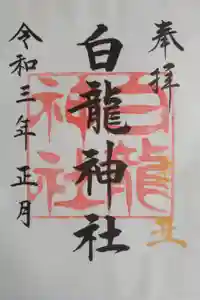 奉拝
正
白龍神社
白龍
神社
令和三年正月